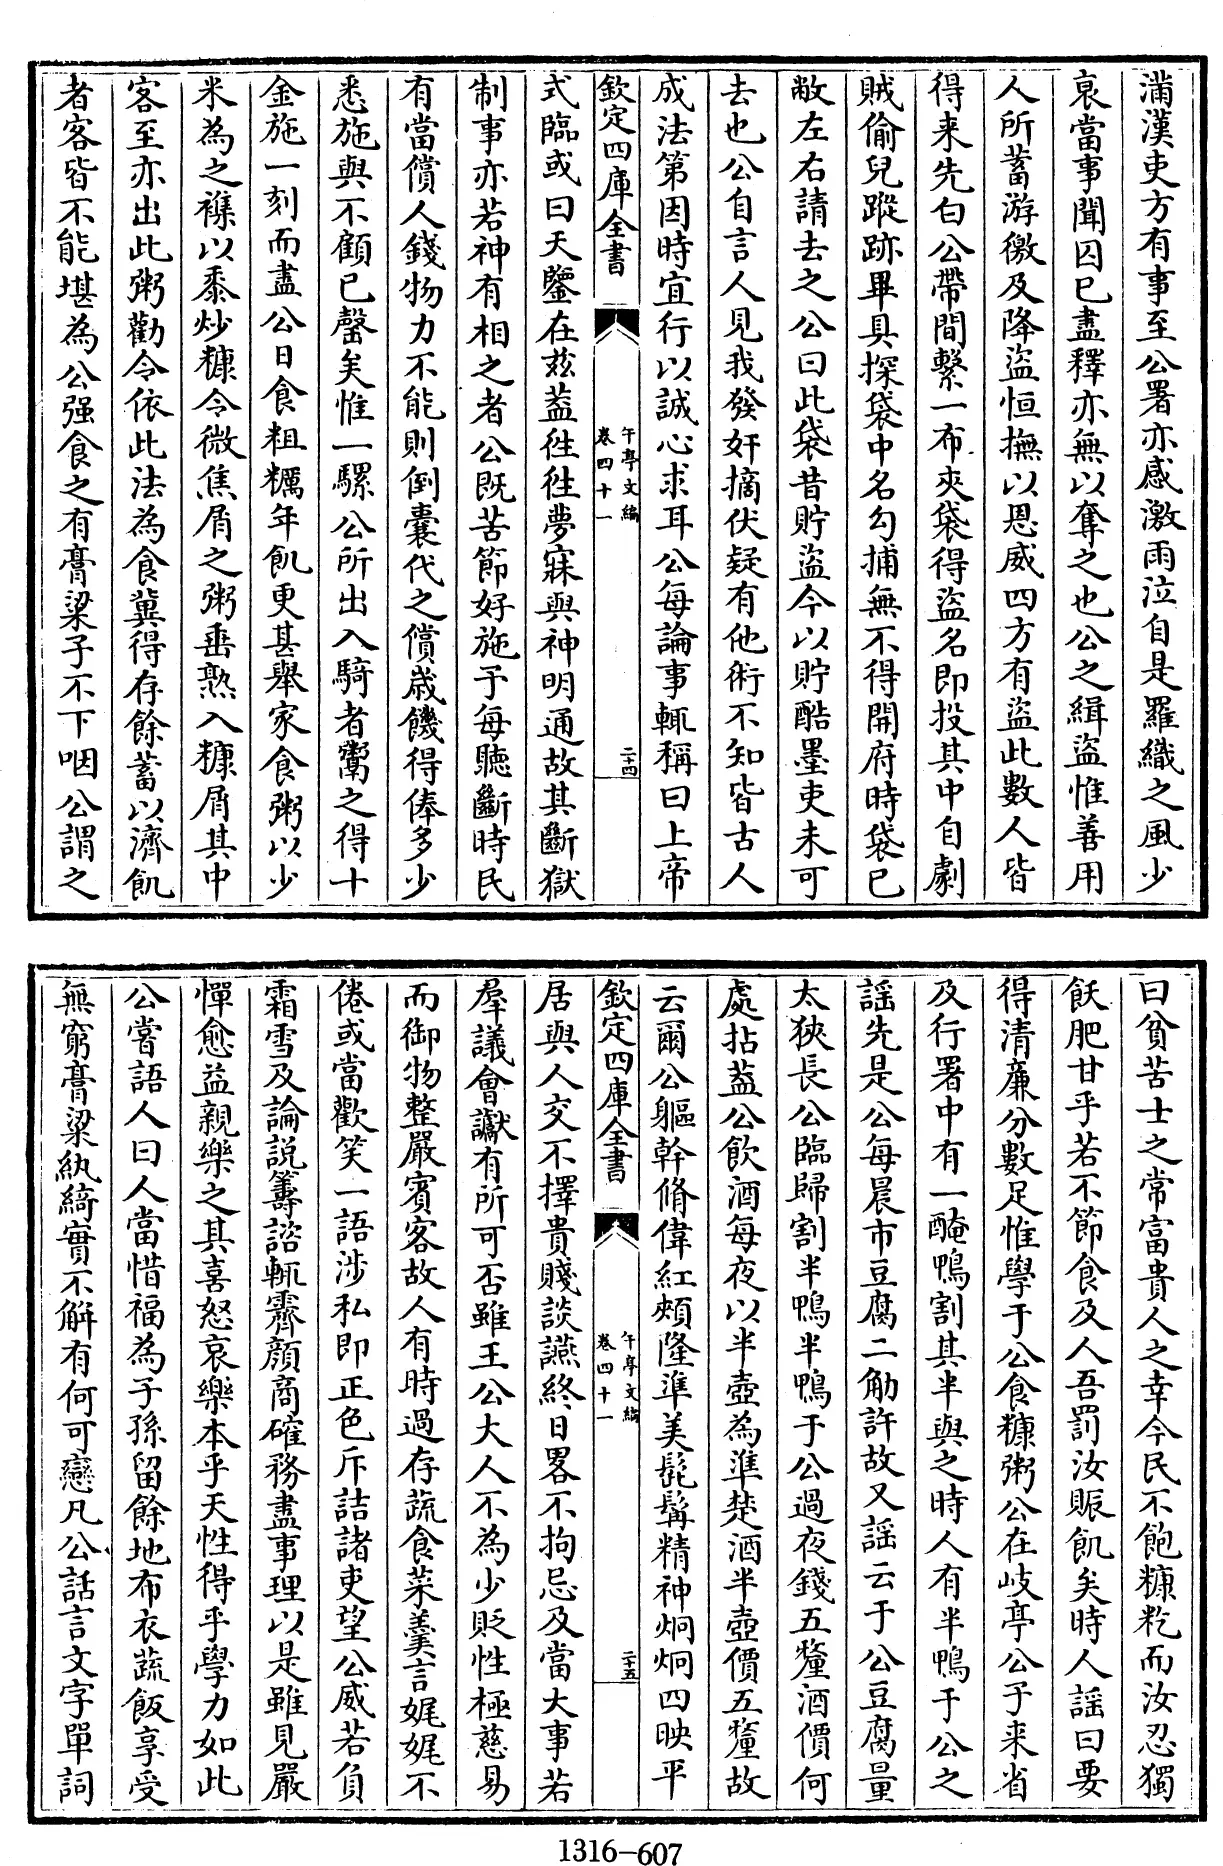 滿漢吏方有事至公署亦感激雨泣自是羅織之風少
衰當事聞囚已盡釋亦無以奪之也公之緝盜惟善用
人所蓄游徼及降盜恒撫以恩威四方有盜此數人皆
得来先白公帶間繫一布夾袋得盜名即投其中自劇
賊偷兒蹤跡畢具探袋中名勾捕無不得開府時袋已
敝左右請去之公曰此袋昔貯盜今以貯酷墨吏未可
去也公自言人見我發奸摘伏疑有他術不知皆古人
成法第因時宜行以誠心求耳公每論事輒稱曰上帝
欽定四庫全書
午亭文編
卷四十一
二十四
式臨或曰天鑒在兹葢徃徃夢寐與神明通故其斷獄
制事亦若神有相之者公既苦節好施予每聽斷時民
有當償人錢物力不能則倒囊代之償歲饑得俸多少
悉施與不顧已罄矣惟一騾公所出入騎者鬻之得十
金施一刻而盡公日食粗糲年飢更甚舉家食粥以少
米為之襍以黍炒糠令微焦屑之粥垂熟入糠屑其中
客至亦出此粥勸令依此法為食冀得存餘蓄以濟飢
者客皆不能堪為公强食之有膏粱子不下咽公謂之
曰貧苦士之常富貴人之幸今民不飽糠籺而汝忍獨
飫肥甘乎若不節食及人吾罰汝賑飢矣時人謡曰要
得清廉分數足惟學于公食糠粥公在岐亭公子来省
及行署中有一醃鴨割其半與之時人有半鴨于公之
謡先是公每晨市豆腐二觔許故又謡云于公豆腐量
太狹長公臨歸割半鴨半鴨于公過夜錢五釐酒價何
處拈葢公飲酒每夜以半壺為準楚酒半壺價五釐故
云爾公軀幹脩偉紅頰隆準美髭髯精神炯炯四映平
欽定四庫全書
午亭文編
卷四十一
二十五
居與人交不擇貴賤談讌終日畧不拘忌及當大事若
羣議會讞有所可否雖王公大人不為少貶性極慈易
而御物整嚴賓客故人有時過存蔬食菜羹言娓娓不
倦或當歡笑一語涉私即正色斥詰諸吏望公威若負
霜雪及論說籌諮輒霽顔商確務盡事理以是雖見嚴
憚愈益親樂之其喜怒哀樂本乎天性得乎學力如此
公嘗語人曰人當惜福為子孫留餘地布衣蔬飯享受
無窮膏粱紈綺實不解有何可戀凡公話言文字單詞
1316-607